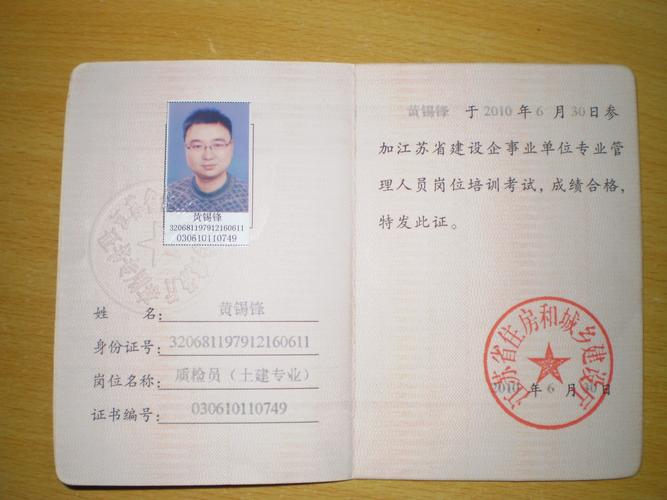 黄锡锋
320681197912160611
030610110749
姓 名: 黄锡锋
身份证号: 320681197912160611
岗位名称: 质检员（土建专业）
证书编号: 030610110749
黄锡锋 于 2010 年 6 月 30日参
加江苏省建设企事业单位专业管
理人员岗位培训考试，成绩合格，
特发此证。
江苏省住房和城乡建设厅
2010 年 6 月 30 日